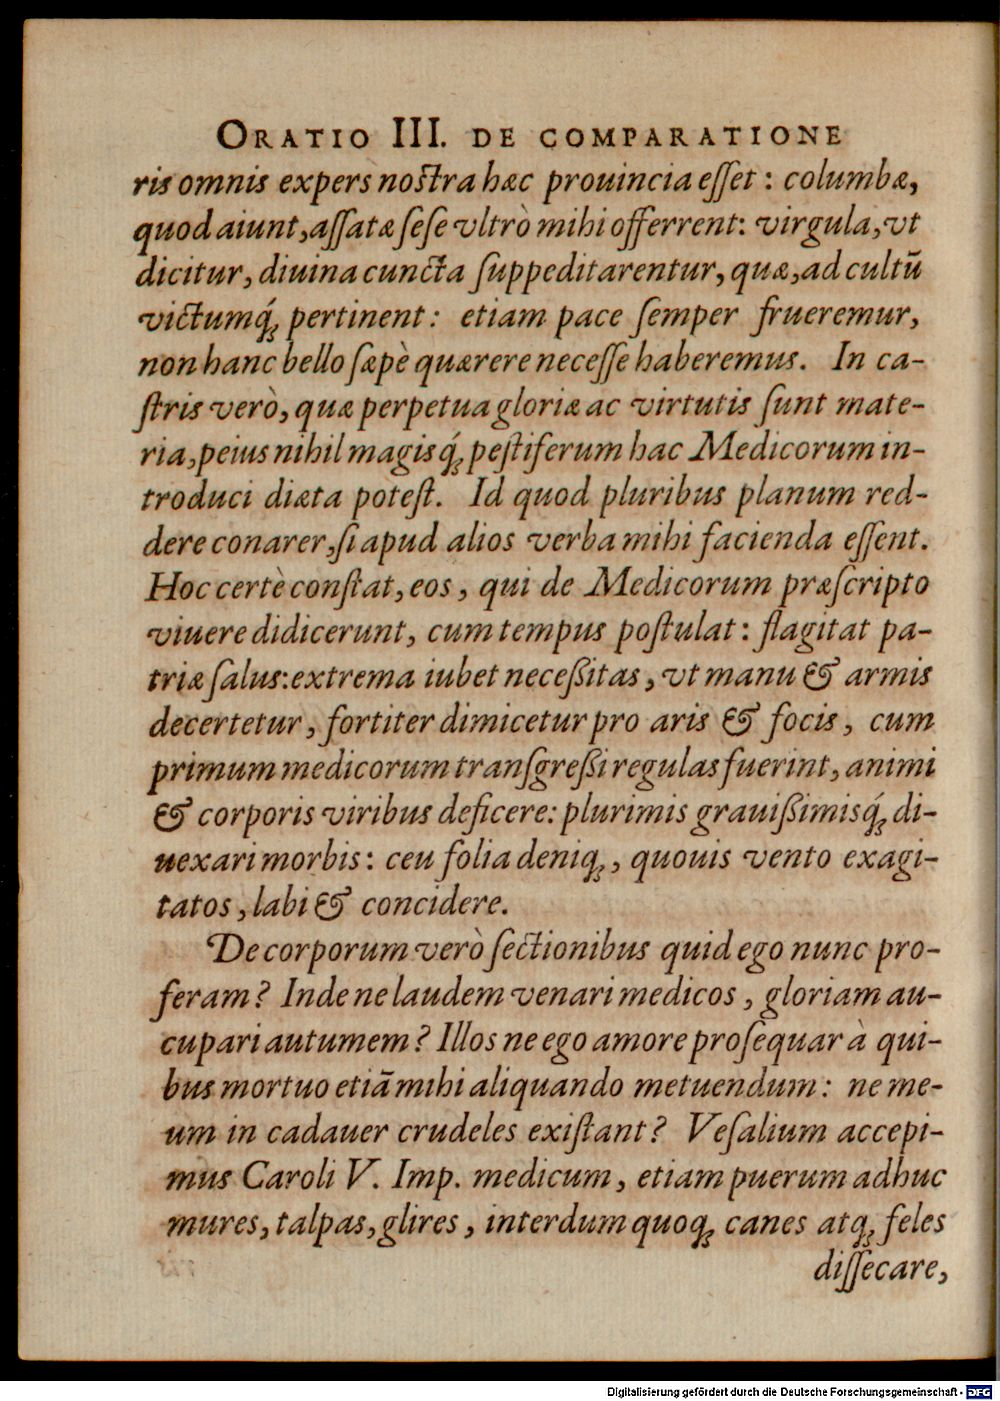 ORATIO III. DE COMPARATIONE
ris omnis expers nostra hæc prouincia eſſet : columbæ,
quod aiunt, aſſatæ ſeſe vltrò mihi offerrent: virgula, vt
dicitur, diuina cuncta ſuppeditarentur, quæ, ad cultū
victumq́; pertinent : etiam pace ſemper frueremur,
non hanc bello ſæpè quærere neceſſe haberemus. In ca-
ſtris verò, quæ perpetua gloriæ ac virtutis ſunt mate-
ria, peius nihil magisq́; peſtiferum hac Medicorum in-
troduci diæta poteſt. Id quod pluribus planum red-
dere conarer, ſi apud alios verba mihi facienda eſſent.
Hoc certè conſtat, eos, qui de Medicorum præſcripto
viuere didicerunt, cum tempus poſtulat : flagitat pa-
triæ ſalus: extrema iubet neceßitas, vt manu & armis
decertetur, fortiter dimicetur pro aris & focis, cum
primum medicorum tranſgreßi regulas fuerint, animi
& corporis viribus deficere: plurimis grauißimisq́; di-
uexari morbis : ceu folia deniq;, quouis vento exagi-
tatos, labi & concidere.
De corporum verò ſectionibus quid ego nunc pro-
feram? Inde ne laudem venari medicos, gloriam au-
cupari autumem? Illos ne ego amore proſequar à qui-
bus mortuo etiā mihi aliquando metuendum : ne me-
um in cadauer crudeles exiſtant? Veſalium accepi-
mus Caroli V. Imp. medicum, etiam puerum adhuc
mures, talpas, glires, interdum quoq; canes atq; feles
diſſecare,
Digitalisierung gefördert durch die Deutsche Forschungsgemeinschaft - DFG